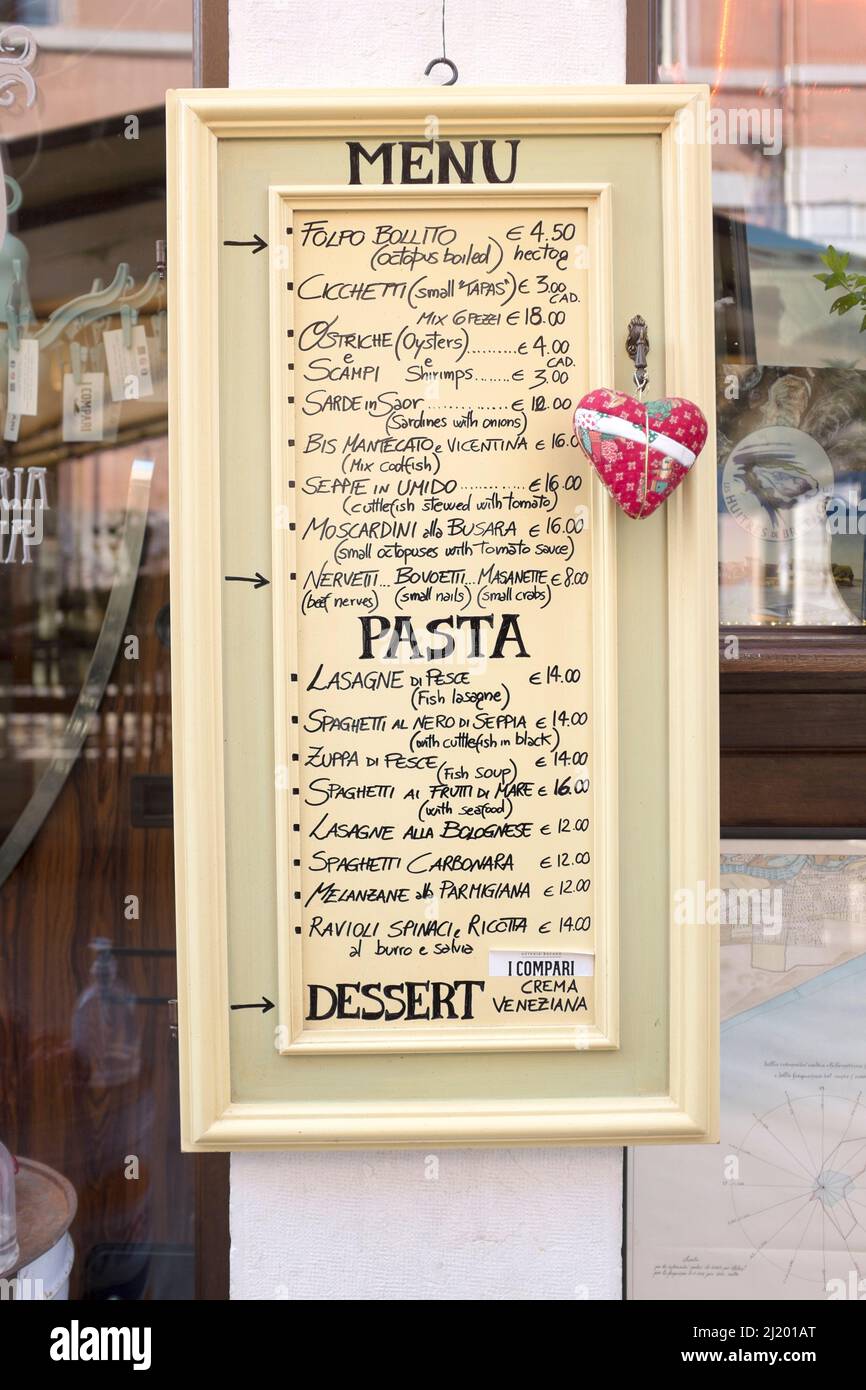 MENU
FOLPO BOLLITO € 4.50
(octopus boiled) hectog
CICCHETTI (small "TAPAS") € 3.00
CAD.
MIX 6 PEZZI € 18.00
OSTRICHE (Oysters) .......... € 4.00
e e CAD.
SCAMPI Shirimps ........ € 3.00
SARDE in SAOR .................. € 12.00
(Sardines with onions)
BIS MANTECATO e VICENTINA € 16.0
(Mix codfish)
SEPPIE IN UMIDO .......... € 16.00
(cuttlefish stewed with tomato)
MOSCARDINI alla BUSARA € 16.00
(small octopuses with tomato sauce)
NERVETTI... BOVOETTI... MASANETTE € 8.00
(beef nerves) (small nails) (small crabs)
PASTA
LASAGNE DI PESCE € 14.00
(Fish lasagne)
SPAGHETTI AL NERO DI SEPPIA € 14.00
(with cuttlefish in black)
ZUPPA DI PESCE € 14.00
(Fish soup)
SPAGHETTI AI FRUTTI DI MARE € 16.00
(with seafood)
LASAGNE ALLA BOLOGNESE € 12.00
SPAGHETTI CARBONARA € 12.00
MELANZANE alla PARMIGIANA € 12.00
RAVIOLI SPINACI e RICOTTA € 14.00
al burro e salvia
I COMPARI
DESSERT CREMA
VENEZIANA
COMPARI
alamy
Image ID: 2J201AT
www.alamy.com